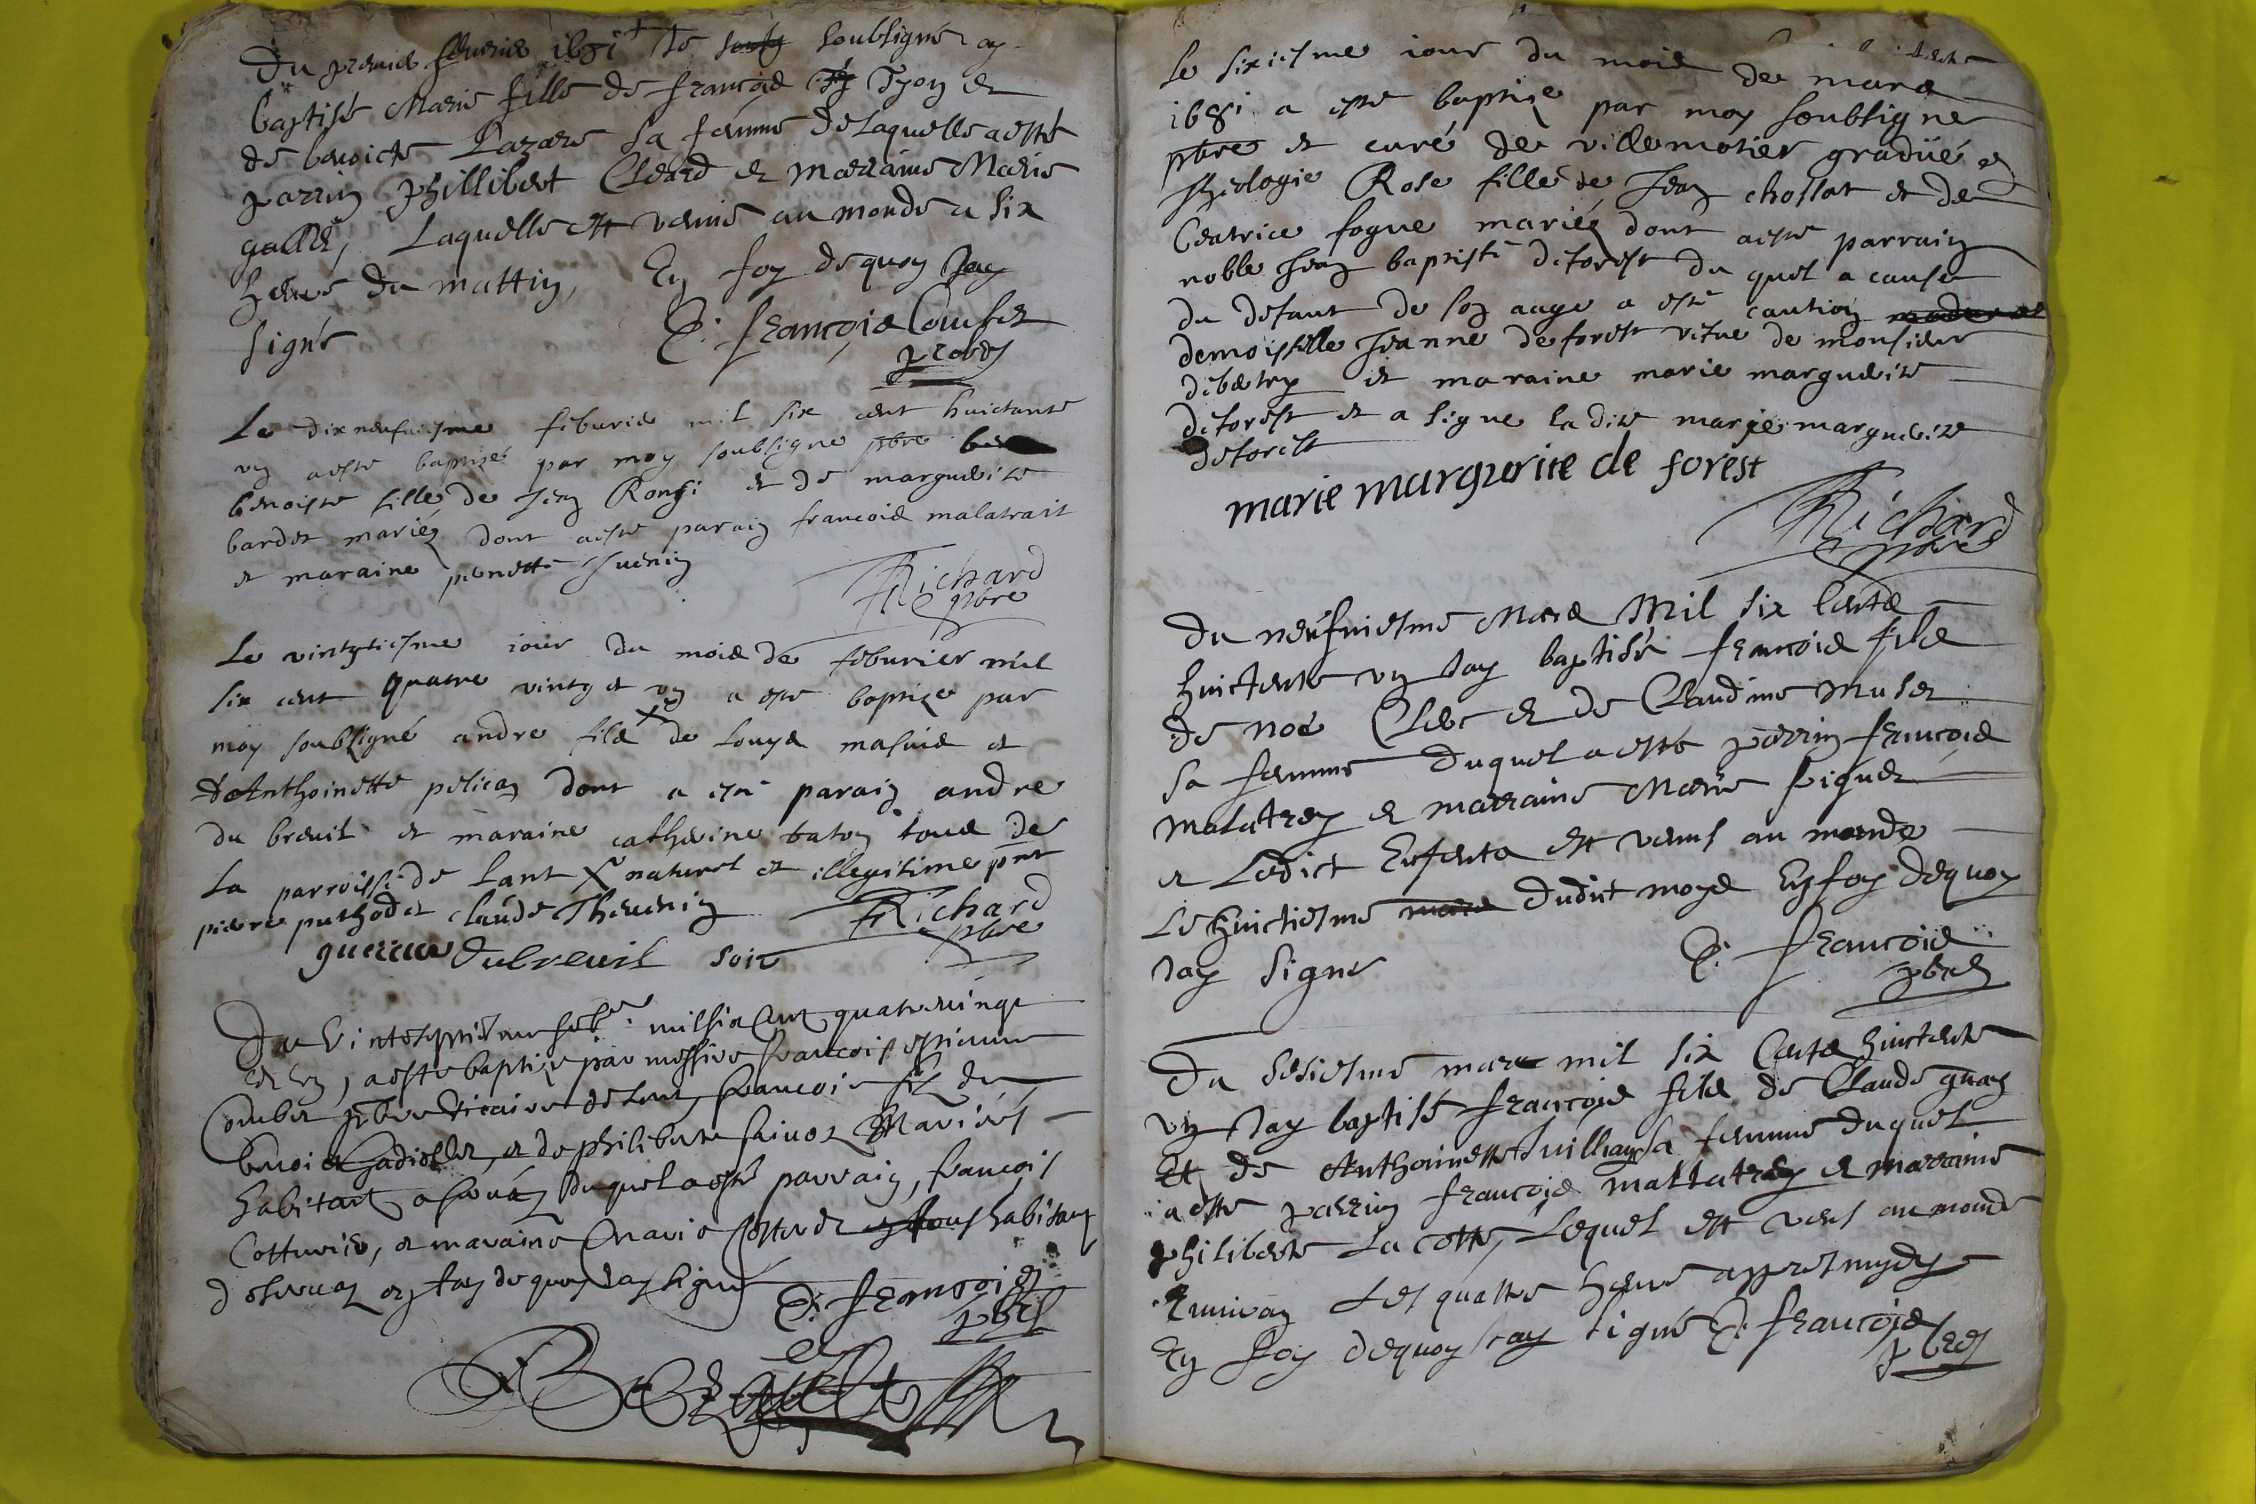 Du premier feburier 1681 Je soubsigné ay
baptisé Marie fille de francois Tyon et
de benoicte Lazare sa femme de laquelle a esté
parrin Phillibert Cleard et marraine Marie
gallet, Laquelle est venue au monde a six
heure du mattin, En foy de quoy Jay
signé E. francois Combet
prbre
Le dixneufuiesme feburier mil six cent huictante
un a este baptizee par moy soubsigne pbre
benoiste fille de Jean Rongi et de marguerite
bardet mariez dont a este parain francois malatrait
et maraine pernette Juenin
Richard
pbre
Le vintgtiesme jour du mois de feburier mil
six cent quatre vintg et un a este baptize par
moy soubsigné andre fils X de Louys masuie et
dAnthoinette pelican dont a esté parain andre
du breuil et maraine catherine baton tous de
la parroisse de Lant X naturel et illegitime pnt
pierre puthod et claude Thevenin
Richard
pbre
guerree Dubreuil soit
Du Vintesettiesme feb. mil six cent quatrevingt
et un, a este baptize par messire francois estienne
Combet pbre vicaire de Lent francois fils de
benoict Gadiollet, et de philiberte Saivoz Mariés
habitant a seruaz duquel a esté parrain, francois
Cotturier, et maraine Marie Cotturier habitant
de seruaz en foy de quoy Jay signé
E. francois
pbre
Le sixiesme jour du mois de mars
1681 a este baptize par moy soubsigne
pbre et curé de villemotier gradué en
theologie Rose fille de Jean chossat et de
Ceatrice fogue mariez dont a este parrain
noble Jean baptiste deforest du quel a cause
du defaut de son aage a esté caution
demoiselle Jeanne deforest vefue de monsieur
debatry et maraine marie marguerite
deforest et a signe ladite marie marguerite
deforest
marie marguerite de forest
Richard
pbre
Du neufuiesme Mars Mil six Cents
huictente un Jay baptisé francois fils
de Noé Clerc et de Claudine Muset
sa femme duquel a esté parrin francois
Malatrey et marraine Marie Piguet
et Ledict Enfents est venus au monde
Le huictiesme dudict moys En foy dequoy
Jay signe E. francois
pbre
Du sesiesme mars mil six Cents huictente
un Jay baptisé francois fils de Claude guay
Et de Anthoinette Juilliard sa femme duquel
a este parrin francois mallatrey et marraine
philiberte La cotte, Lequel est venus au monde
Enuiron Les quattre heure appres mydy
En foy dequoy Jay signé E. francois
pbre